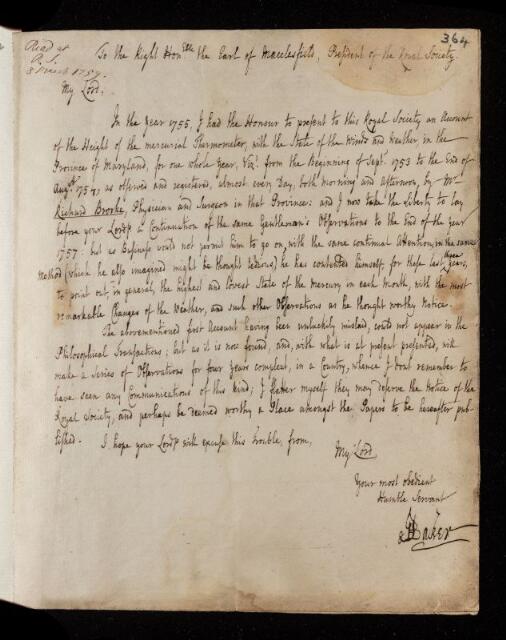 364
Read at
R.S.
To the Right Hon.ble the Earl of Macclesfield, President of the Royal Society.
My Lord,
In the Year 1755, I had the Honour to present to this Royal Society an Account
of the Height of the mercurial Thermometer, with the State of the Winds and Weather, in the
Province of Maryland, for one whole Year, Viz.t from the Beginning of Sept.r 1753 to the End of
Aug.st 1754, as observed and registered, almost every Day, both Morning and Afternoon, by Mr
Richard Brooke, Physician and Surgeon in that Province: and I now take the Liberty to lay
before your Lordp a Continuation of the same Gentleman's Observations to the End of the year
1757. but as Business would not permit him to go on, with the same continual Attention, in the same
Method (which he also imagined might be thought tedious) he has contented himself, for these last three years,
to point out, in general, the highest and lowest State of the Mercury in each Month, with the most
remarkable Changes of the Weather, and such other Observations as he thought worthy Notice.
The abovementioned first Account having been unluckily mislaid, could not appear in the
Philosophical Transactions; but as it is now found, and, with what is at present presented, will
make a Series of Observations for four years compleat, in a Country, whence I don't remember to
have seen any Communications of this kind; I flatter myself they may deserve the Notice of the
Royal Society, and perhaps be deemed worthy a Place amongst the Papers to be hereafter pub-
lished. I hope your Lordp will excuse this Trouble, from,
My Lord
Your most obedient
Humble Servant
H Baker